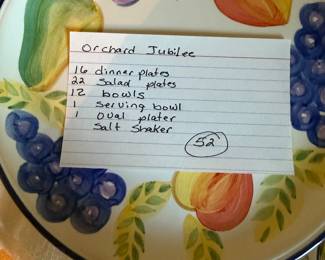 Orchard Jubilee
16 dinner plates
22 Salad plates
12 bowls
1 Serving bowl
1 Oval plater
Salt Shaker
52